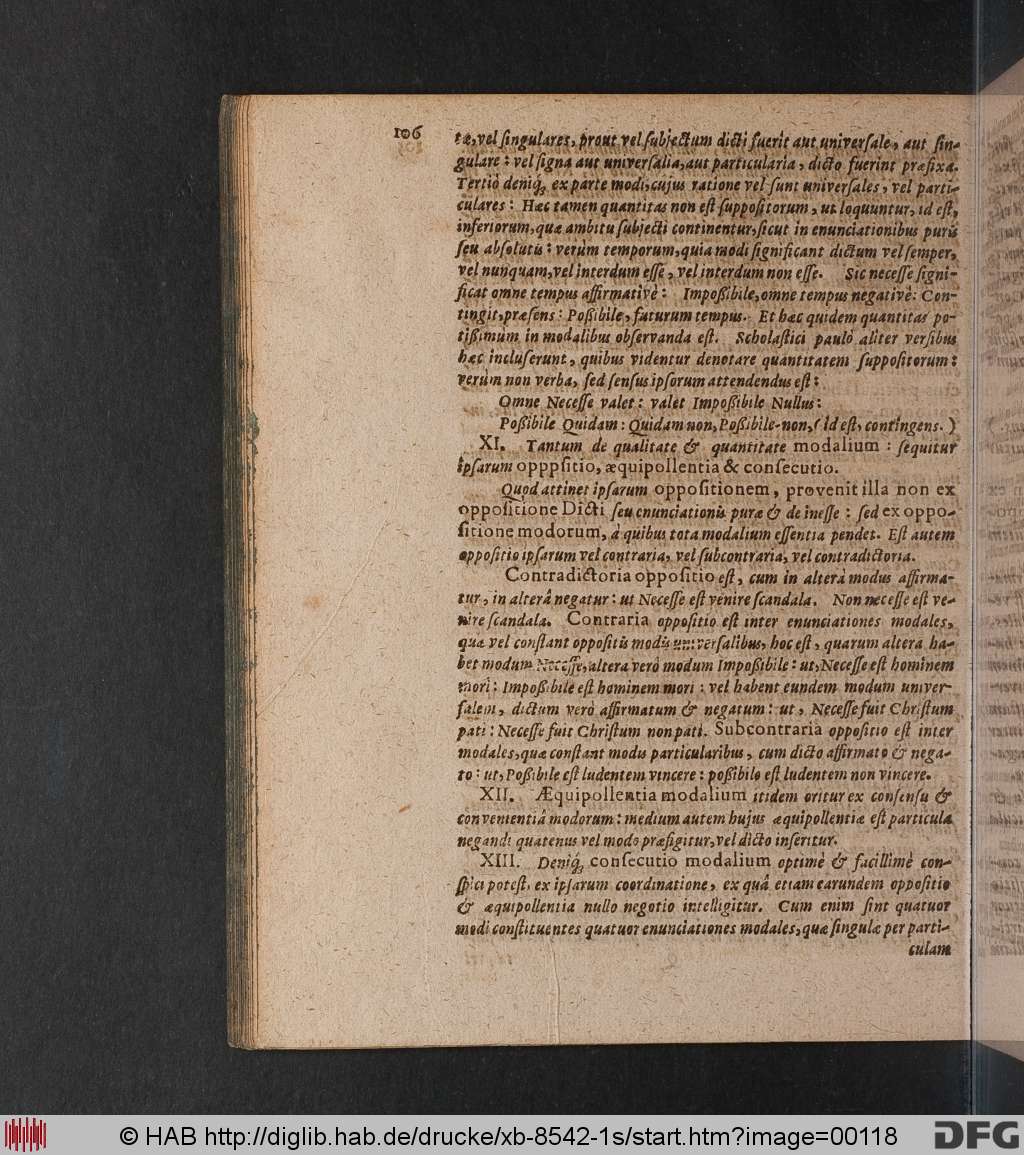 106
tæ, vel ſingulares, prout vel ſubjectum dicti fuerit aut univerſale, aut ſin-
gulare: vel ſigna aut univerſalia, aut particularia, dicto fuerint præfixa.
Tertiò deniq́; ex parte modi, cujus ratione vel ſunt univerſales, vel parti-
culares: Hæc tamen quantitas non eſt ſuppoſitorum, ut loquuntur, id eſt,
inferiorum, quæ ambitu ſubjecti continentur, ſicut in enunciationibus puris
ſeu abſolutis: verùm temporum, quia modi ſignificant dictum vel ſemper,
vel nunquam, vel interdum eſſe, vel interdum non eſſe. Sic neceſſe ſigni-
ficat omne tempus affirmativè: Impoßibile, omne tempus negativè: Con-
tingit, præſens: Poßibile, futurum tempus. Et hæc quidem quantitas po-
tißimum in modalibus obſervanda eſt. Scholaſtici paulò aliter verſibus
hæc incluſerunt, quibus videntur denotare quantitatem ſuppoſitorum:
verùm non verba, ſed ſenſus ipſorum attendendus eſt:
Omne Neceſſe valet: valet Impoßibile Nullus:
Poßibile Quidam: Quidam non, Poßibile-non, (id eſt, contingens.)
XI. Tantum de qualitate & quantitate modalium: ſequitur
ipſarum opppſitio, æquipollentia & conſecutio.
Quod attinet ipſarum oppoſitionem, provenit illa non ex
oppoſitione Dicti ſeu enunciationis puræ & de ineſſe: ſed ex oppo-
ſitione modorum, à quibus tota modalium eſſentia pendet. Eſt autem
oppoſitio ipſarum vel contraria, vel ſubcontraria, vel contradictoria.
Contradictoria oppoſitio eſt, cum in alterâ modus affirma-
tur, in alterâ negatur: ut Neceſſe eſt venire ſcandala. Non neceſſe eſt ve-
nire ſcandala. Contraria oppoſitio eſt inter enunciationes modales,
quæ vel conſtant oppoſitis modis univerſalibus, hoc eſt, quarum altera ha-
bet modum Neceſſe, altera verò modum Impoßibile: ut, Neceſſe eſt hominem
mori: Impoßibile eſt hominem mori: vel habent eundem modum univer-
ſalem, dictum verò affirmatum & negatum: ut, Neceſſe fuit Chriſtum
pati: Neceſſe fuit Chriſtum non pati. Subcontraria oppoſitio eſt inter
modales, quæ conſtant modis particularibus, cum dicto affirmato & nega-
to: ut, Poßibile eſt ludentem vincere: poßibile eſt ludentem non vincere.
XII. Æquipollentia modalium itidem oritur ex conſenſu &
convenientiâ modorum: medium autem hujus æquipollentiæ eſt particula
negandi quatenus vel modo præfigitur, vel dicto inſeritur.
XIII. Deniq́; conſecutio modalium optimè & facillimè con-
ſpici poteſt, ex ipſarum coordinatione, ex quâ etiam earundem oppoſitio
& æquipollentia nullo negotio intelligitur. Cum enim ſint quatuor
modi conſtituentes quatuor enunciationes modales, quæ ſingulæ per parti-
culam
© HAB http://diglib.hab.de/drucke/xb-8542-1s/start.htm?image=00118
DFG